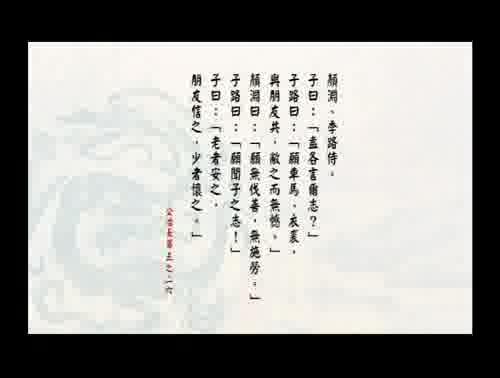 顏淵、季路侍。
子曰：「盍各言爾志？」
子路曰：「願車馬、衣裘，
與朋友共，敝之而無憾。」
顏淵曰：「願無伐善，無施勞。」
子路曰：「願聞子之志！」
子曰：「老者安之，
朋友信之，少者懷之。」
公冶長第五之．一六